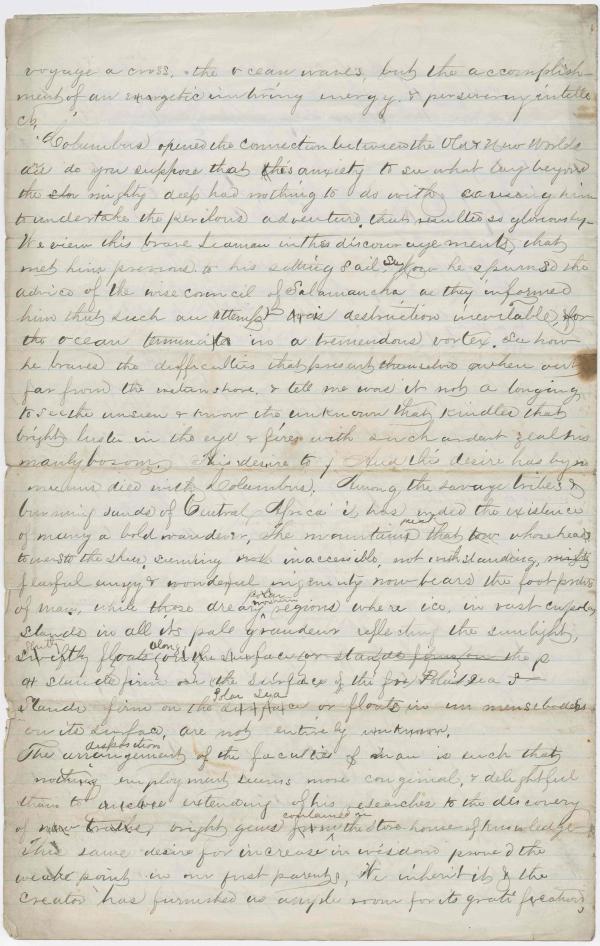 voyage a cross, the ocean waves, but the accomplish-
ment of an energetic untiring energy. & persevering intelle
ct,
Columbus opened the connection between the Old & New Worlds
and do you suppose that his anxiety to see what lay beyond
the mighty deep had nothing to do with causing him
to undertake the perilous adventure that resulted so gloriously-
We view this brave Seaman in the discouragements that
met him previous to his setting sail, See how he spurned the
advice of the wise council of Salamancha as they informed
him that such an attempt was destruction inevitable, for
the ocean terminated in a tremendous vortex. See how
he braved the difficulties that present themselves when out
far from the western shore, & tell me was it not a longing
to see the unseen & know the unknown that kindled that
bright luster in the eye & fired with such ardent zeal his
manly bosom. This desire to And this desire has by no
means died with Columbus. Among the savage tribes &
burning sands of Central Africa it has ended the existence
of many a bold wanderer, The mountains that rear whose heads
towers to the skies, seeming inaccessible, not withstanding,
fearful energy & wonderful ingenuity now bears the foot prints
of man, while those dreary polar regions where ice, in vast
stands in all its pale grandeur reflecting the sunlight,
swiftly floats along the surface or stands firm on the p
or stands firm on the surface of the Polar Sea &
stands firm on the Polar Sea or floats in immense bodies
on its surface, are not entirely unknown.
The arrangement disposition of the faculties of man is such that
nothing employment seems more congenial, & delightful
than to extending of his researches to the discovery
of new truths, bright gems contained in the store house of knowledge
This same desire for increase in wisdom proved the
weake point in our first parents, We inherit it & the
Creator has furnished us ample room for its gratification,